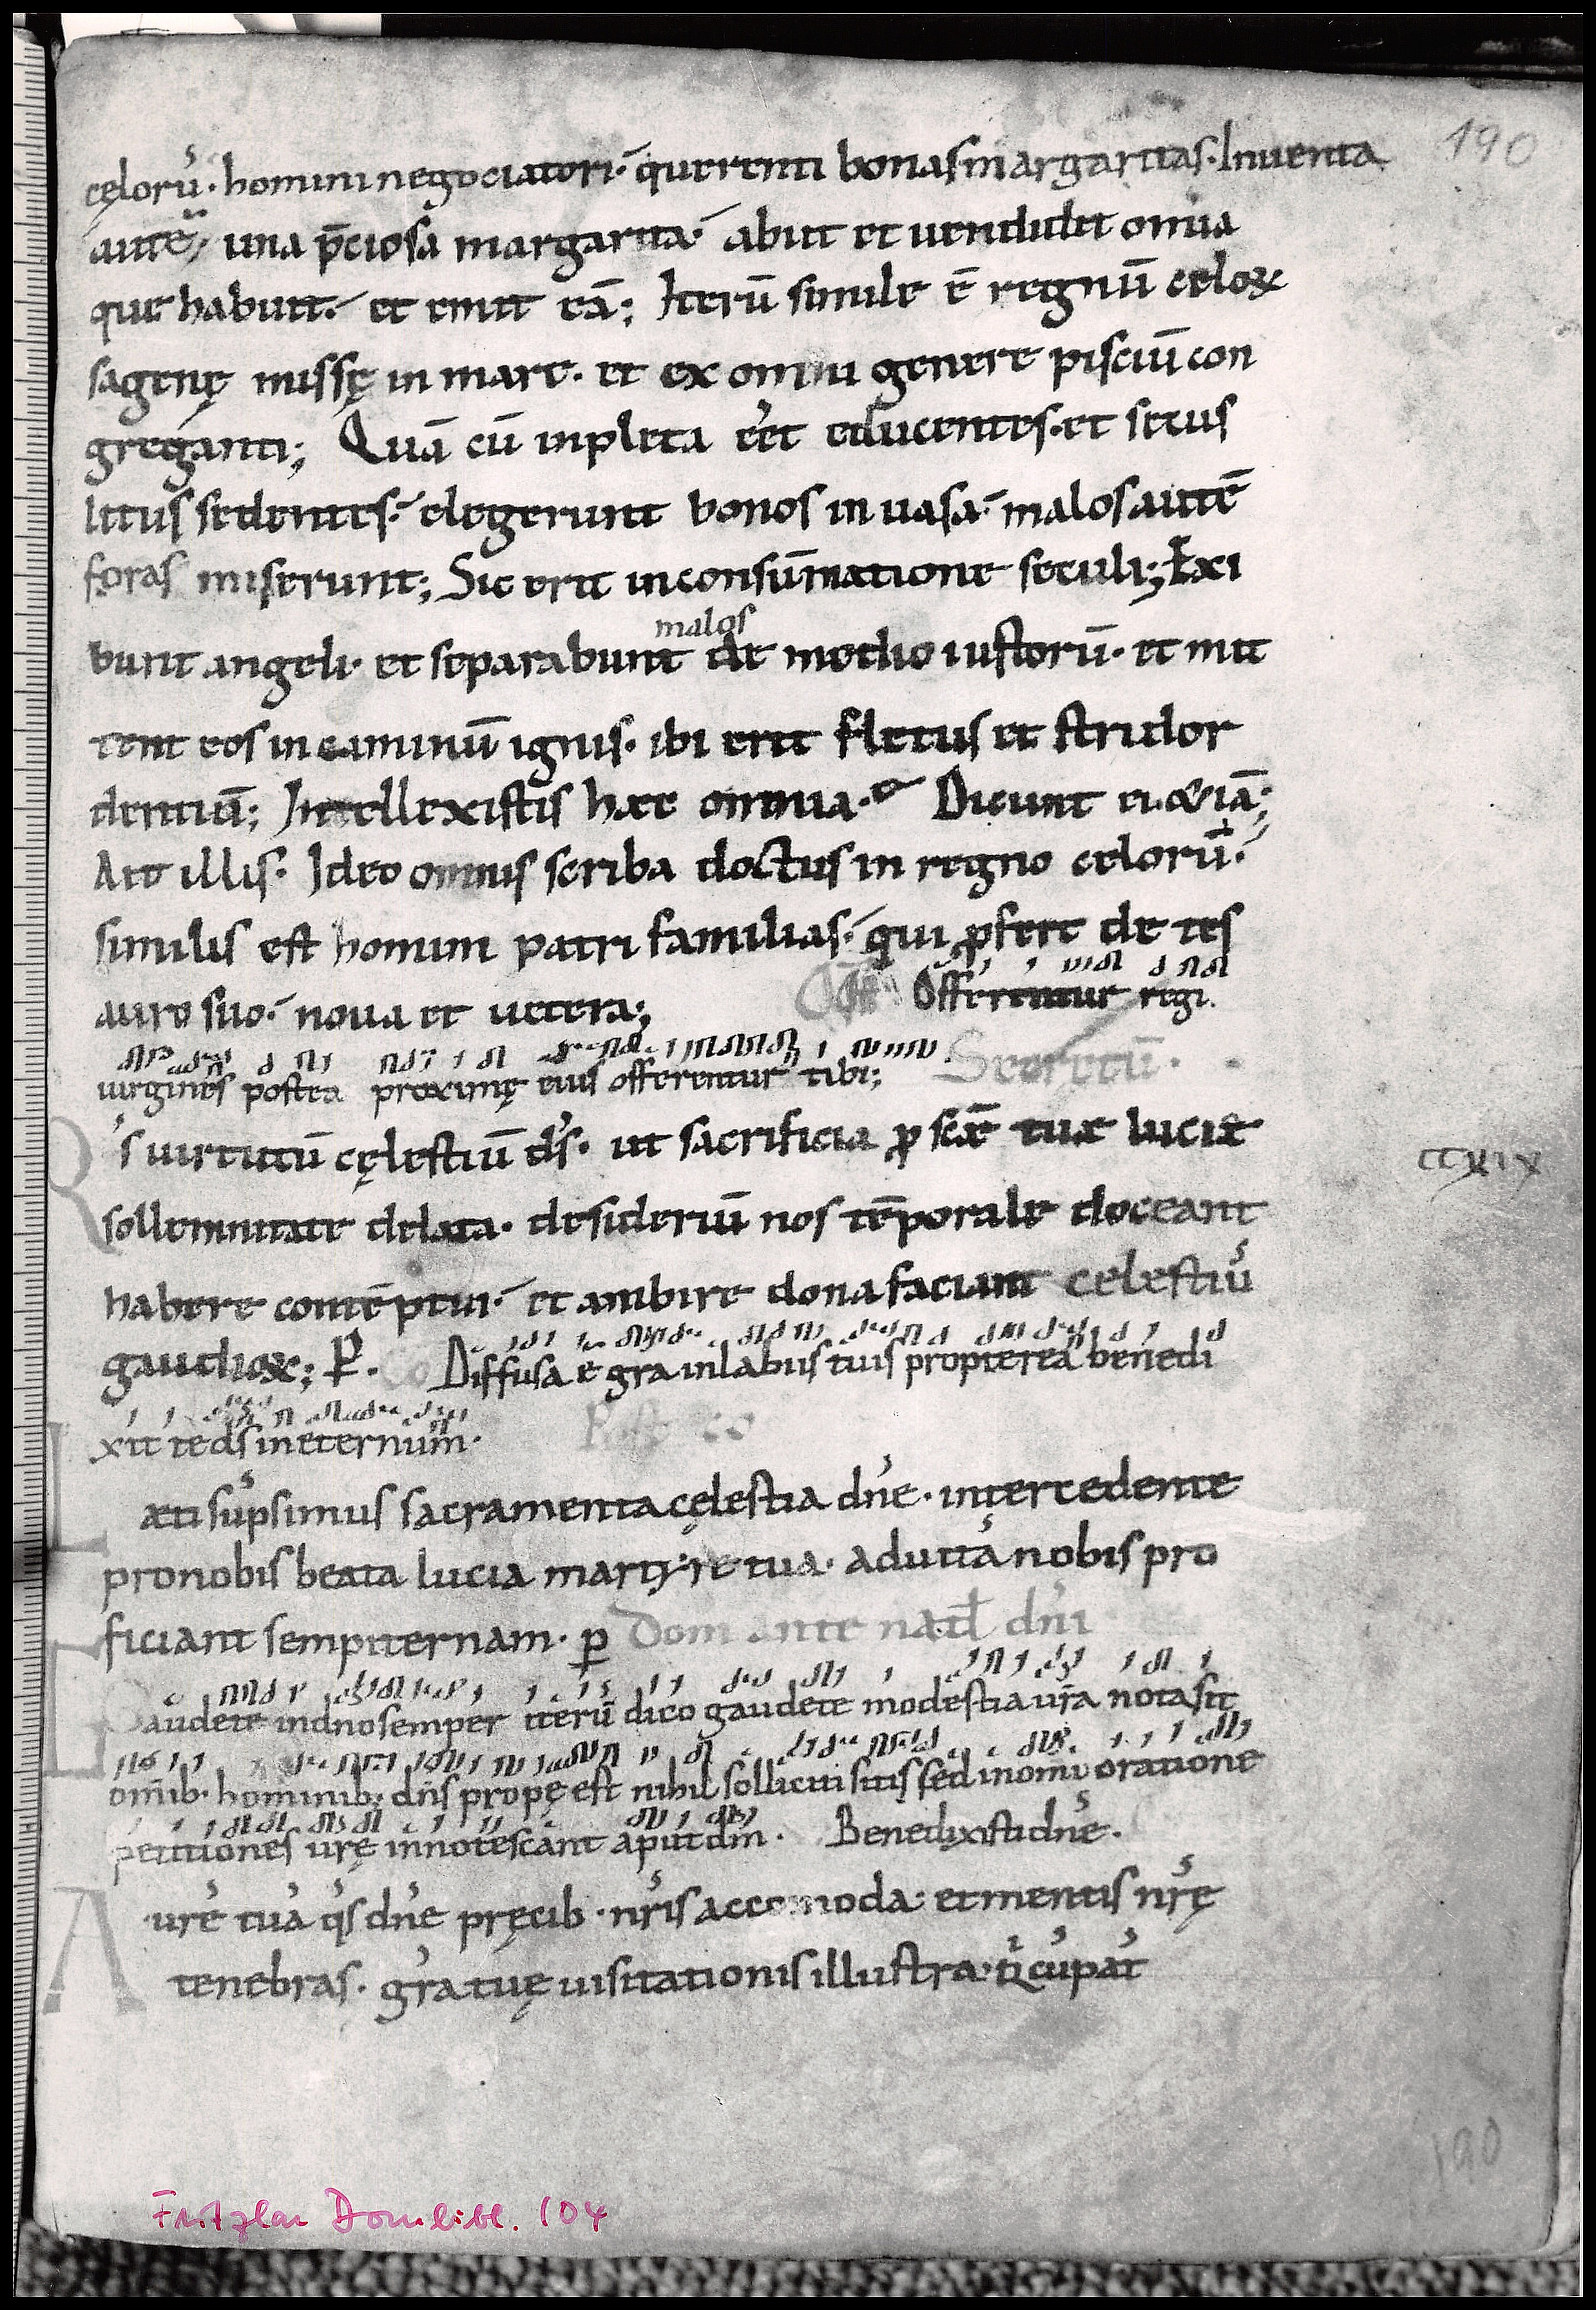 190
cęlorū· homini negociatori· querenti bonas margaritas· Inuenta
autē una p̄ciosa margarita· abiit et uendidit omnia
que habuit· et emit eā; Iterū simile ē regnū celoꝝ
sagenę missę in mare· et ex omni genere pisciū con
greganti; Quā cū inpleta eēt educentes· et secus
litus sedentes· elegerunt bonos in uasa· malos autē
foras miserunt; Sic erit in consūmatione seculi; Exi
malos
bunt angeli· et separabunt de medio iustorū· et mit
tent eos in caminū ignis· ibi erit fletus et stridor
dentiū; Intellexistis hæc omnia· Dicunt ei &iā;
Ait illis· Ideo omnis scriba doctus in regno celorū·
similis est homini patri familias· qui ꝓfert de tes
auro suo· noua et uetera; Off Offerentur regi
uirgines postea proximę eius offerentur tibi; Secretū·
s uirtutū cęlestiū d̄s· ut sacrificia ꝓ scǣ tuæ luciæ
ccxix
sollemnitate delata· desideriū nos tēporale doceant
habere contēptui· et ambire dona faciant celestiū
gaudioꝝ; P̄· co Diffusa ē gra in labiis tuis propterea benedi
xit te ds in eternum· Post co
Læti sūpsimus sacramenta cęlestia dn̄e· intercedente
pro nobis beata lucia martyre tua· ad uitā nobis pro
ficiant sempiternam· ꝑ Dom ante natl̄ dn̄i
Gaudete in dno semper iterū dico gaudete modestia ur̄a nota sit
om̄ib· hominib; dn̄s propę est nihil solliciti sitis sed in omni oratione
petitiones urę innotescant aput dm̄· Benedixisti dn̄e·
Aurē tuā q̄s dn̄e pręcib· nr̄is accomoda· et mentis nr̄ę
tenebras· gr̄a tuę uisitationis illustra· q̄ cū pat
190
Fritzlar Dombibl. 104